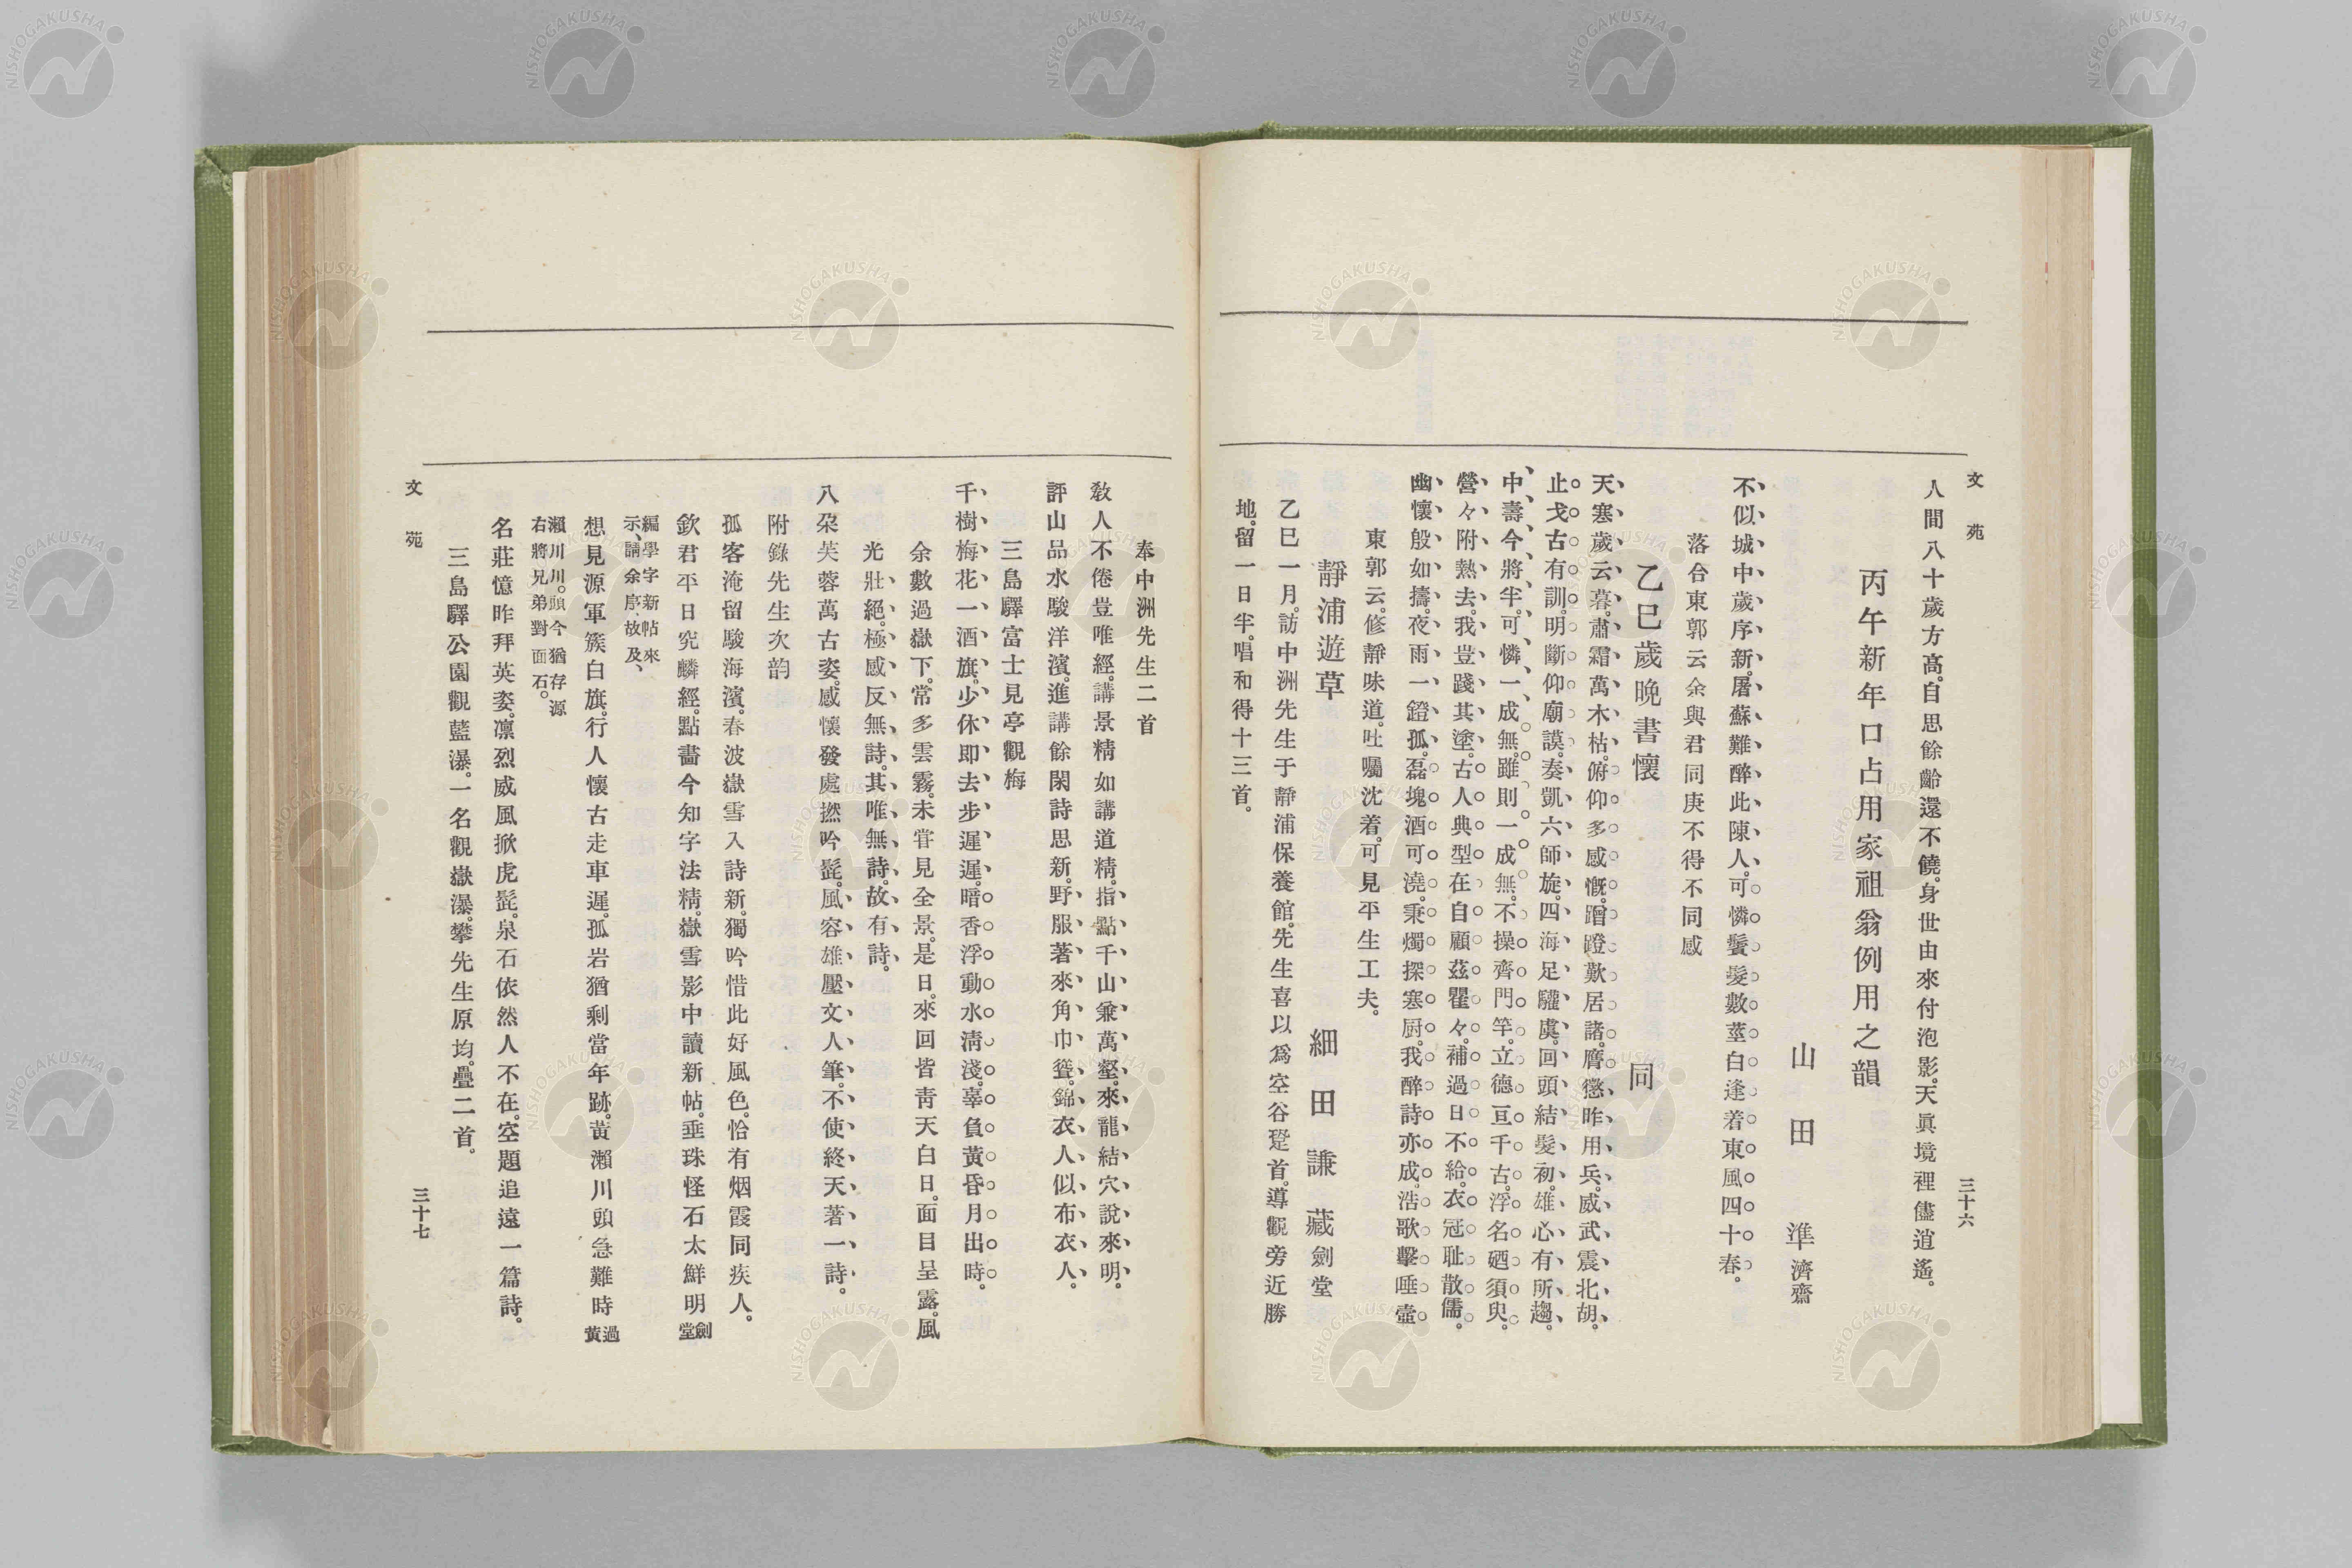 文苑
三十六
人間八十歲方高。自思餘齡還不饒。身世由來付泡影。天眞境裡儘逍遙。
丙午新年口占用家祖翁例用之韻
山田準濟齋
不似城中歲序新。屠蘇難醉此陳人。可憐鬢髮數莖白。逢着東風四十春。
落合東郭云余與君同庚不得不同感
乙巳歲晚書懷 同
天寒歲云暮。肅霜萬木枯。俯仰多感慨。蹭蹬歎居諸。膺懲昨用兵。威武震北胡。
止戈古有訓。明斷仰廟謨。奏凱六師旋。四海足驩虞。回頭結髮初。雄心有所趨。
中壽今將半。可憐一成無。雖則一成無。不操齊門竿。立德亘千古。浮名廼須臾。
營々附熱去。我豈踐其塗。古人典型在。自顧茲瞿々。補過日不給。衣冠耻散儒。
幽懷殷如擣。夜雨一鐙孤。磊塊酒可澆。秉燭探寒厨。我醉詩亦成。浩歌擊唾壺。
東郭云。修靜味道。吐囑沈着。可見平生工夫。
靜浦遊草
細田謙藏劍堂
乙巳一月。訪中洲先生于靜浦保養館。先生喜以爲空谷跫首。導觀旁近勝
地。留一日半。唱和得十三首。
奉中洲先生二首
敎人不倦豈唯經。講景精如講道精。指點千山兼萬壑。來龍結穴說來明。
評山品水駿洋濱。進講餘閑詩思新。野服著來角巾聳。錦衣人似布衣人。
三島驛富士見亭觀梅
千樹梅花一酒旗。少休即去步遲遲。暗香浮動水淸淺。辜負黃昏月出時。
余數過嶽下。常多雲霧。未甞見全景。是日。來回皆靑天白日。面目呈露。風
光壯絕。極感反無詩。其唯無詩。故有詩。
八朶芙蓉萬古姿。感懷發處撚吟髭。風容雄壓文人筆。不使終天著一詩。
附錄先生次韵
孤客淹留駿海濱。春波嶽雪入詩新。獨吟惜此好風色。恰有烟霞同疾人。
欽君平日究麟經。點畫今知字法精。嶽雪影中讀新帖。垂珠怪石太鮮明 劍堂
編學字新帖來
示、請余序故及、
想見源軍簇白旗。行人懷古走車遲。孤岩猶剩當年跡。黃瀨川頭急難時 過黃
瀨川川。頭今猶存源
右將兄弟對面石。
名莊憶昨拜英姿。凛烈威風掀虎髭。泉石依然人不在。空題追遠一篇詩。
三島驛公園觀藍瀑。一名觀嶽瀑。攀先生原均。疊二首。
文苑
三十七